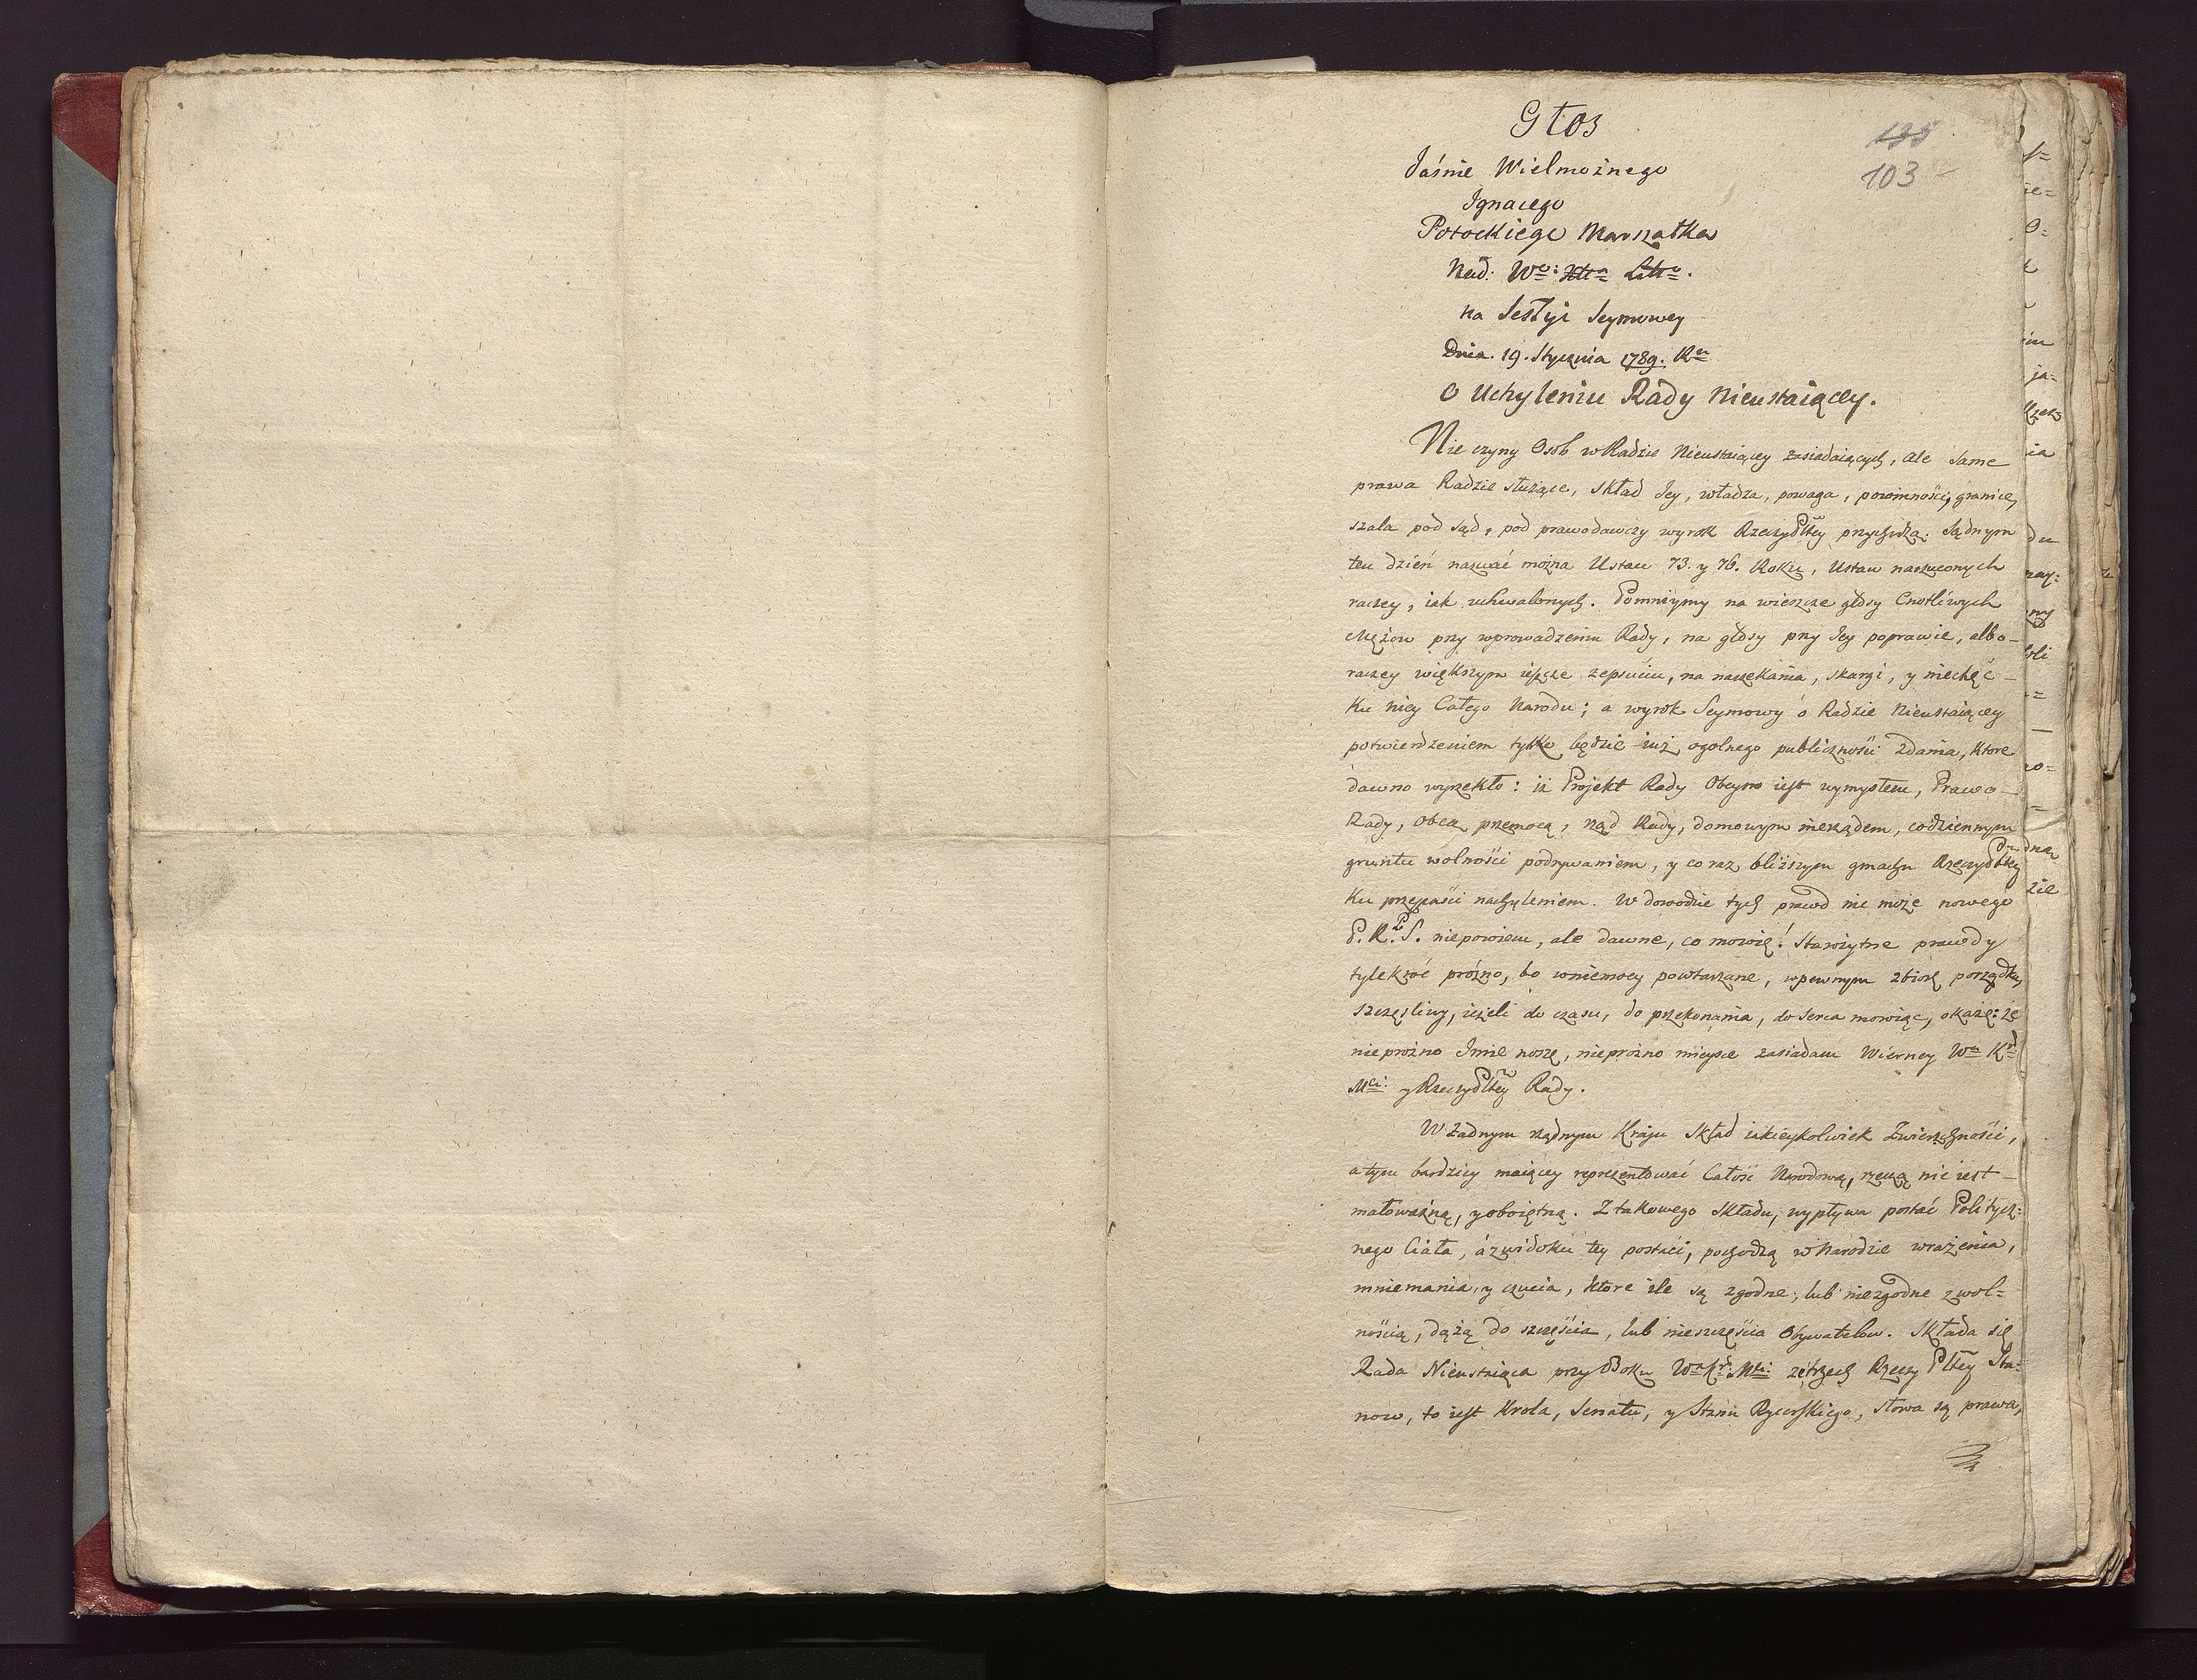 Głos
135
Jaśnie Wielmożnego
103
Ignacego
Potockiego Marszałka
Nad: Wo: Xtra Litro.
na Sessyi Seymowey
Dnia. 19. Stycznia 1789. Ru
O Uchyleniu Rady Nieustaiącey.
Nie czyny Osob w Radzie Nieustaiącey zasiadaiących, ale same
prawa Radzie służące, skład Jey, władza, powaga, powinności, granice,
szala pod sąd, pod prawodawczy wyrok Rzeczypltey przychodzą. Sądnym
ten dzień nazwać można Ustaw 73. y 76. Roku, Ustaw narzuconych
raczey, iak uchwalonych. Pomniymy na wieszcze głosy Cnotliwych
Mężow przy wprowadzeniu Rady, na głosy przy Jey poprawie, albo
raczey większym ieszcze zepsuciu, na narzekania, skargi, y niechęć
ku niey Całego Narodu; a wyrok Seymowy o Radzie Nieustaiącey
potwierdzeniem tylko będzie iuż ogolnego publiczności zdania, ktore
dawno wyrzekło: iż Projekt Rady Obcym iest wymysłem, Prawo
Rady, obcą przemocą, rząd Rady, domowym nierządem, codziennym
gruntu wolności podrywaniem, y co raz bliższym gmachu Rzeczypltey
ku przepaści nachyleniem. W dowodzie tych prawd nic może nowego
P. R. S. niepowiem, ale dawne, co mowię! Starożytne prawdy
tylekroć prożno, bo w niemocy powtarzane, w pewnym zbiorę porządku,
szczęśliwy, ieżeli do czasu, do przekonania, do Serca mowiąc, okażę: że
nieprożno Imie noszę, nieprożno mieysce zasiadam Wierney Wa Kr
Mci: y Rzeczypltey Rady.
W żadnym rządnym Kraju skład iakieykolwiek Zwierzchności,
a tym bardziey maiącey reprezentować Całość Narodową, rzeczą nie iest
małoważną, y oboiętną. Z takowego składu, wypływa postać Politycz=
nego Ciała, a z widoku tey postaci, pochodzą w Narodzie wrażenia,
mniemania, y czucia, ktore ile są zgodne, lub niezgodne z wol=
nością, dążą do szczęścia, lub nieszczęścia Obywatelow. Składa się
Rada Nieustaiąca przy Boku Wa Kr: Mci: ze trzech Rzeczy Pltey Sta=
now, to iest Krola, Senatu, y Stanu Rycerskiego, słowa są prawa,